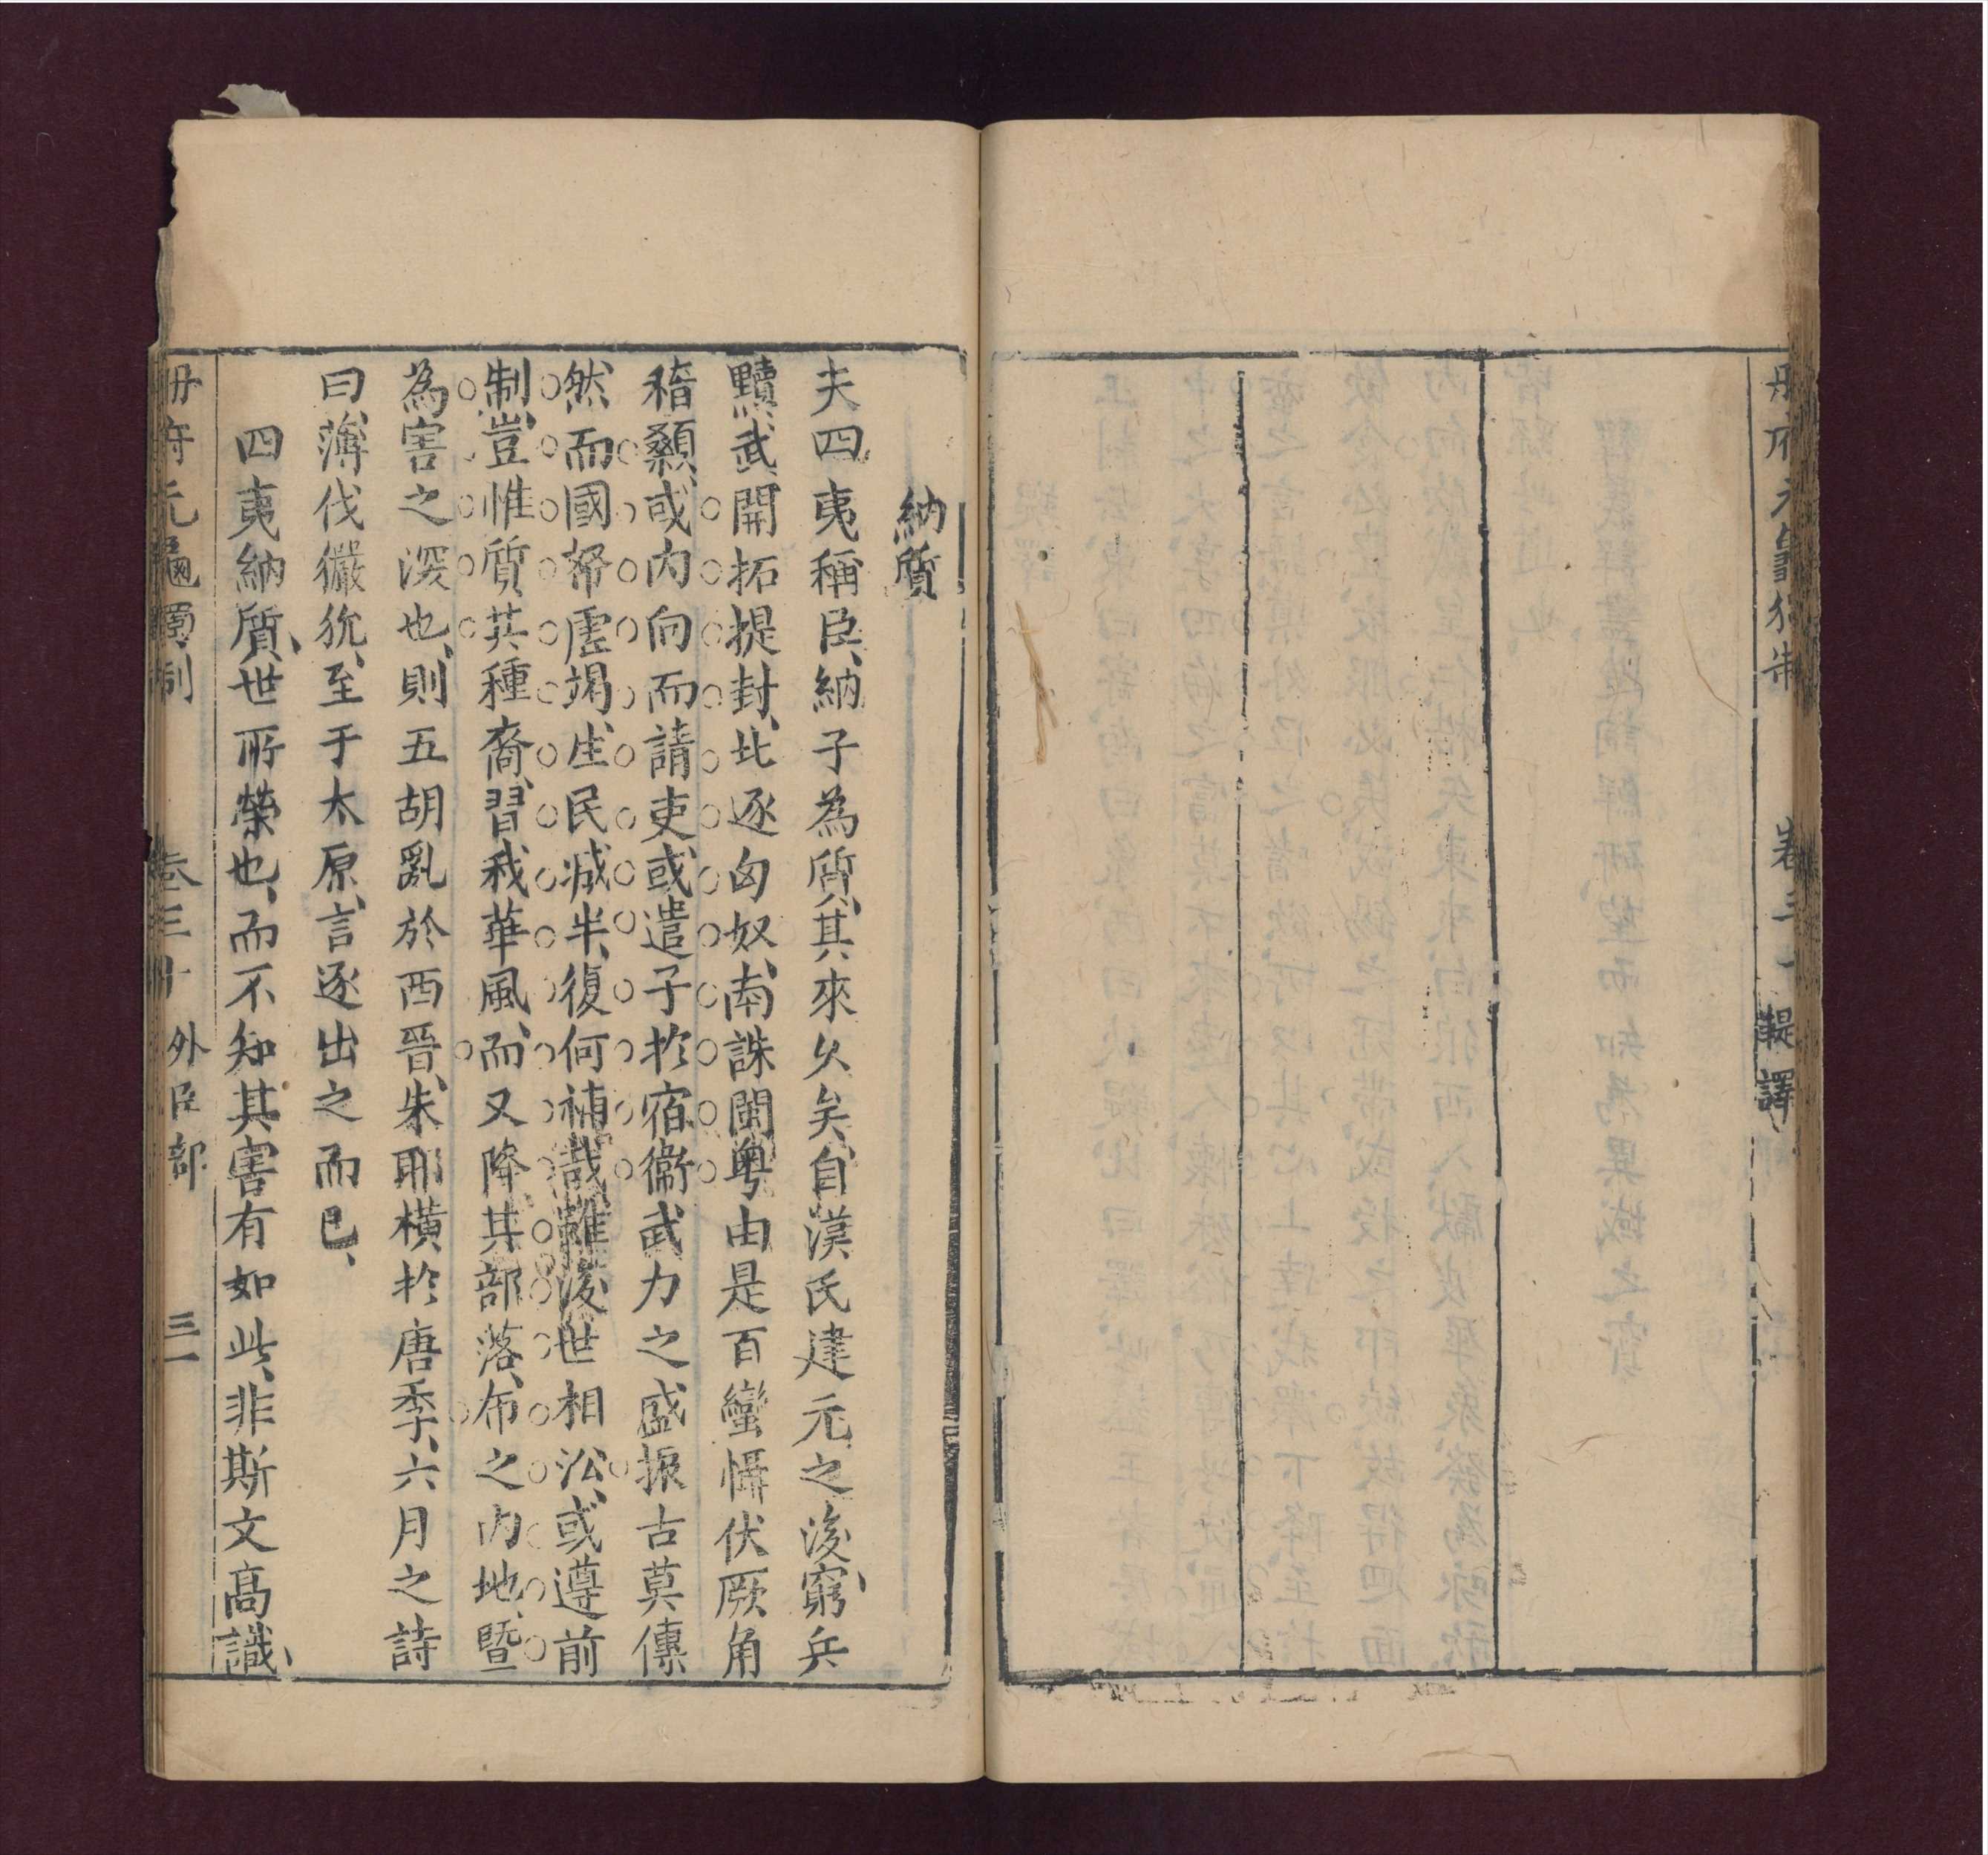 冊府元龜獨制 卷三十 鞮譯
納質
夫四夷稱臣、納子為質、其來久矣、自漢氏建元之後、窮兵
黷武、開拓提封、北逐匈奴、南誅閩粵、由是百蠻懾伏、厥角
稽顙、或內向而請吏、或遣子於宿衞、武力之盛、振古莫儔
然而國帑虛竭、生民減半、復何補哉、雖後世相沿、或遵前
制、豈惟質其種裔、習我華風、而又降其部落、布之內地、暨
為害之深也、則五胡亂於西晉、朱耶橫於唐季、六月之詩
曰、薄伐玁狁、至于太原、言逐出之而已、
四夷納質、世所榮也、而不知其害有如此、非斯文高識、
冊府元龜獨制 卷三十 外臣部 三一